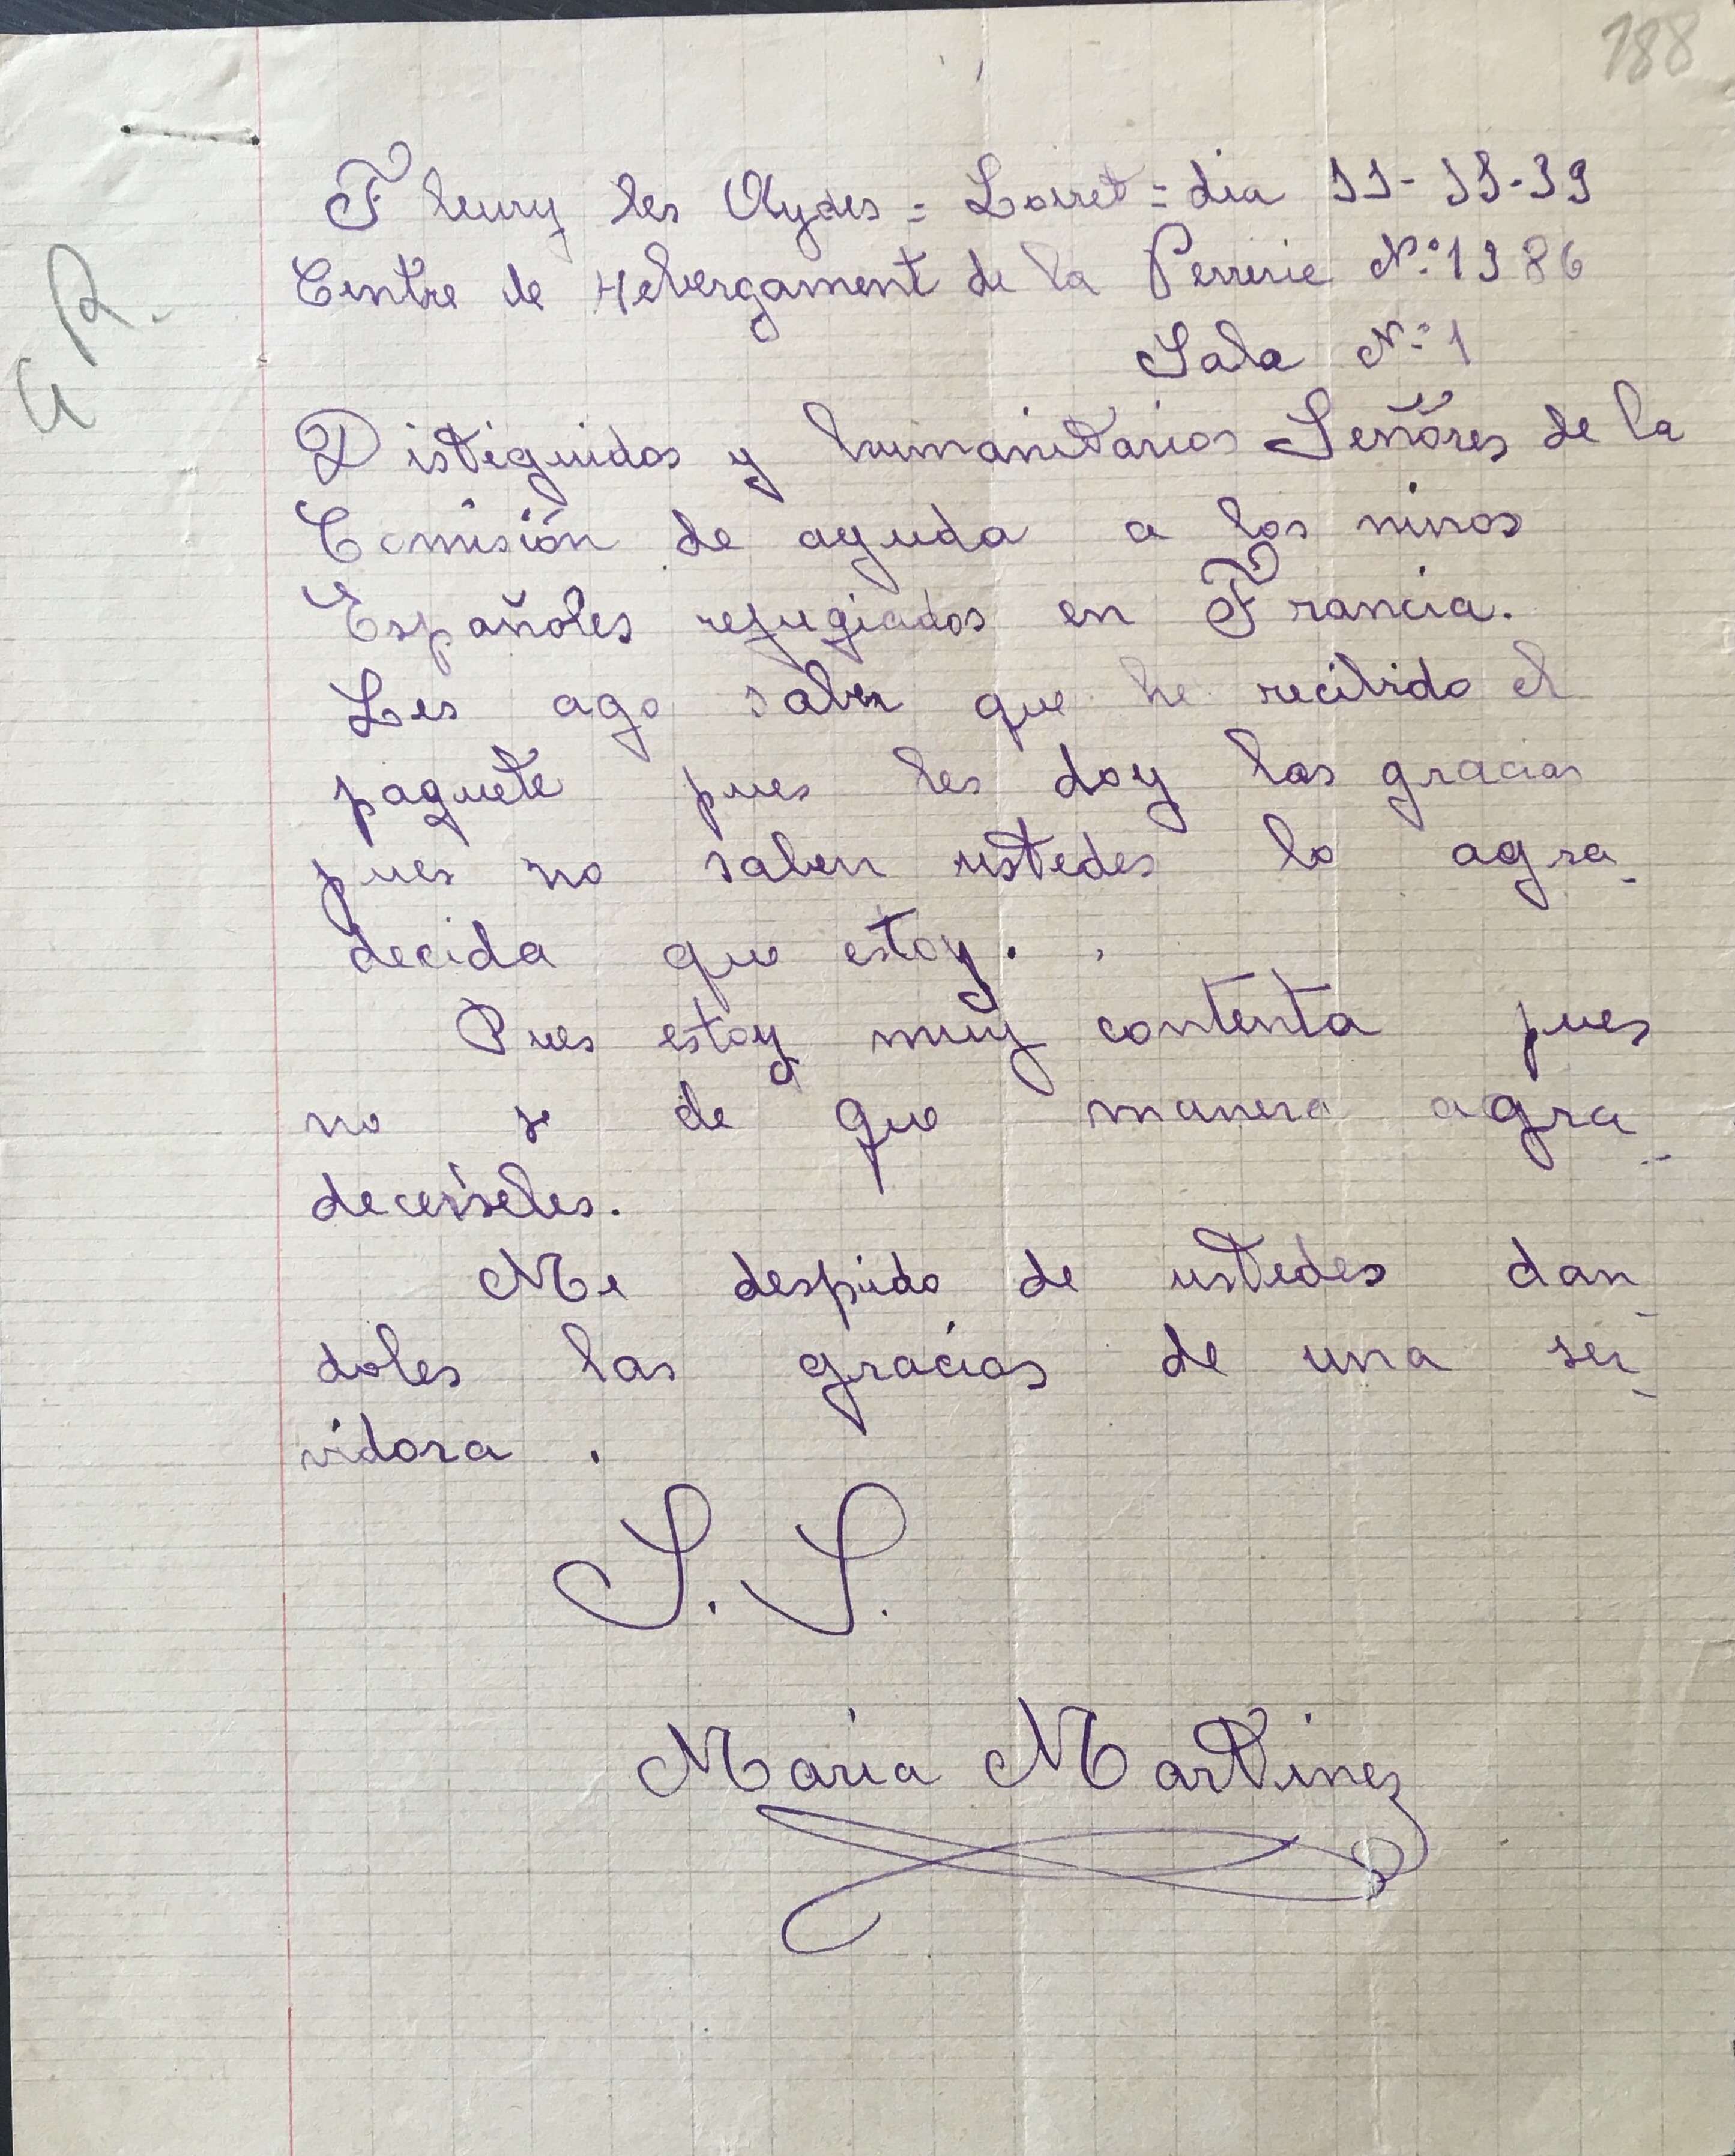 188
Fleury les Aydes = Loiret = dia 11-11-39
Centre de Hebergament de la Perrerie Nº: 1386
Sala Nº: 1
G R.
Distiguidos y humanitarios Señores de la
Comisión de ayuda a los ninos
Españoles refugiados en Francia.
Les ago saber que he recibido el
paquete pues les doy las gracias
pues no saben ustedes lo agra-
decida que estoy.
Pues estoy muy contenta pues
no se de que manera agra-
decerseles.
Me despido de ustedes dan-
doles las gracias de una ser-
vidora.
S. S.
Maria Martinez